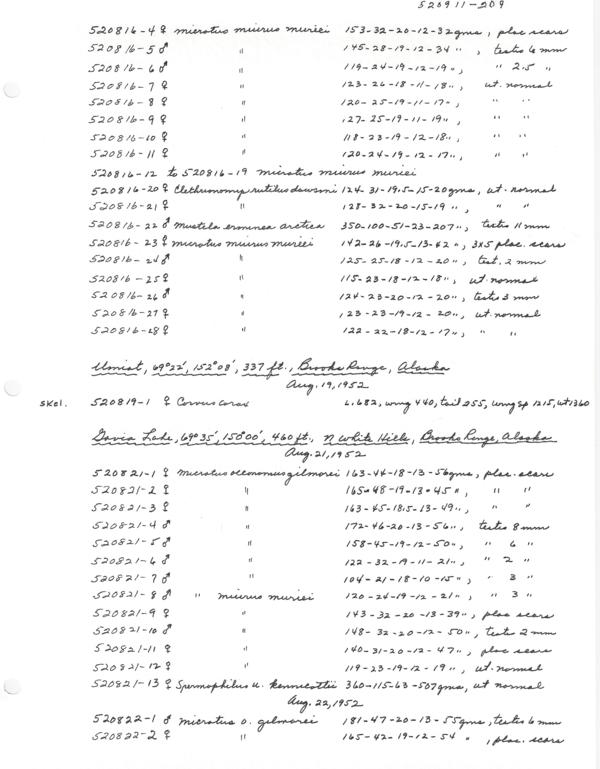 520911-209
520816-4 ♀ microtus miurus muriei 153-32-20-12-32gms, plac scars
520816-5 ♂ " 145-28-19-12-34 ", testis 6 mm
520816-6 ♂ " 119-24-19-12-19 ", " 2.5 "
520816-7 ♀ " 123-26-18-11-18 ", ut. normal
520816-8 ♀ " 120-25-19-11-17 ", " "
520816-9 ♀ " 127-25-19-11-19 ", " "
520816-10 ♀ " 118-23-19-12-18 ", " "
520816-11 ♀ " 120-24-19-12-17 ", " "
520816-12 to 520816-19 microtus miurus muriei
520816-20 ♀ Clethrionomys rutilus dawsoni 124-31-19.5-15-20gms, ut. normal
520816-21 ♀ " 128-32-20-15-19 ", " "
520816-22 ♂ Mustela erminea arctica 350-100-51-23-207 ", testis 11 mm
520816-23 ♀ microtus miurus muriei 142-26-19.5-13-42 ", 3x5 plac. scars
520816-24 ♂ " 125-25-18-12-20 ", test. 2 mm
520816-25 ♀ " 115-23-18-12-18 ", ut. normal
520816-26 ♂ " 124-23-20-12-20 ", testis 3 mm
520816-27 ♀ " 123-23-19-12-20 ", ut. normal
520816-28 ♀ " 122-22-18-12-17 ", " "
Umiat, 69°22', 152°08', 337 ft., Brooks Range, Alaska
Aug. 19, 1952
skel. 520819-1 ♀ Corvus corax L.682, wing 440, tail 255, wing sp 1215, wt 1360
Gavia Lake, 69°35', 150°00', 460 ft., N White Hills, Brooks Range, Alaska
Aug. 21, 1952
520821-1 ♀ Microtus oeconomus gilmorei 163-44-18-13-56gms, plac. scars
520821-2 ♀ " 165-48-19-13-45 ", " "
520821-3 ♀ " 163-45-18.5-13-49 ", " "
520821-4 ♂ " 172-46-20-13-56 ", testis 8 mm
520821-5 ♂ " 158-45-19-12-50 ", " 6 "
520821-6 ♂ " 122-32-19-11-21 ", " 2 "
520821-7 ♂ " 104-21-18-10-15 ", " 3 "
520821-8 ♂ " miurus muriei 120-24-19-12-21 ", " 3 "
520821-9 ♀ " 143-32-20-13-39 ", plac scars
520821-10 ♂ " 148-32-20-12-50 ", testis 2 mm
520821-11 ♀ " 140-31-20-12-47 ", plac scars
520821-12 ♀ " 119-23-19-12-19 ", ut. normal
520821-13 ♀ Spermophilus u. kennicottii 360-115-63-507gms, ut normal
Aug. 22, 1952
520822-1 ♂ microtus o. gilmorei 181-47-20-13-55gms, testis 6 mm
520822-2 ♀ " 165-42-19-12-54 ", plac. scars